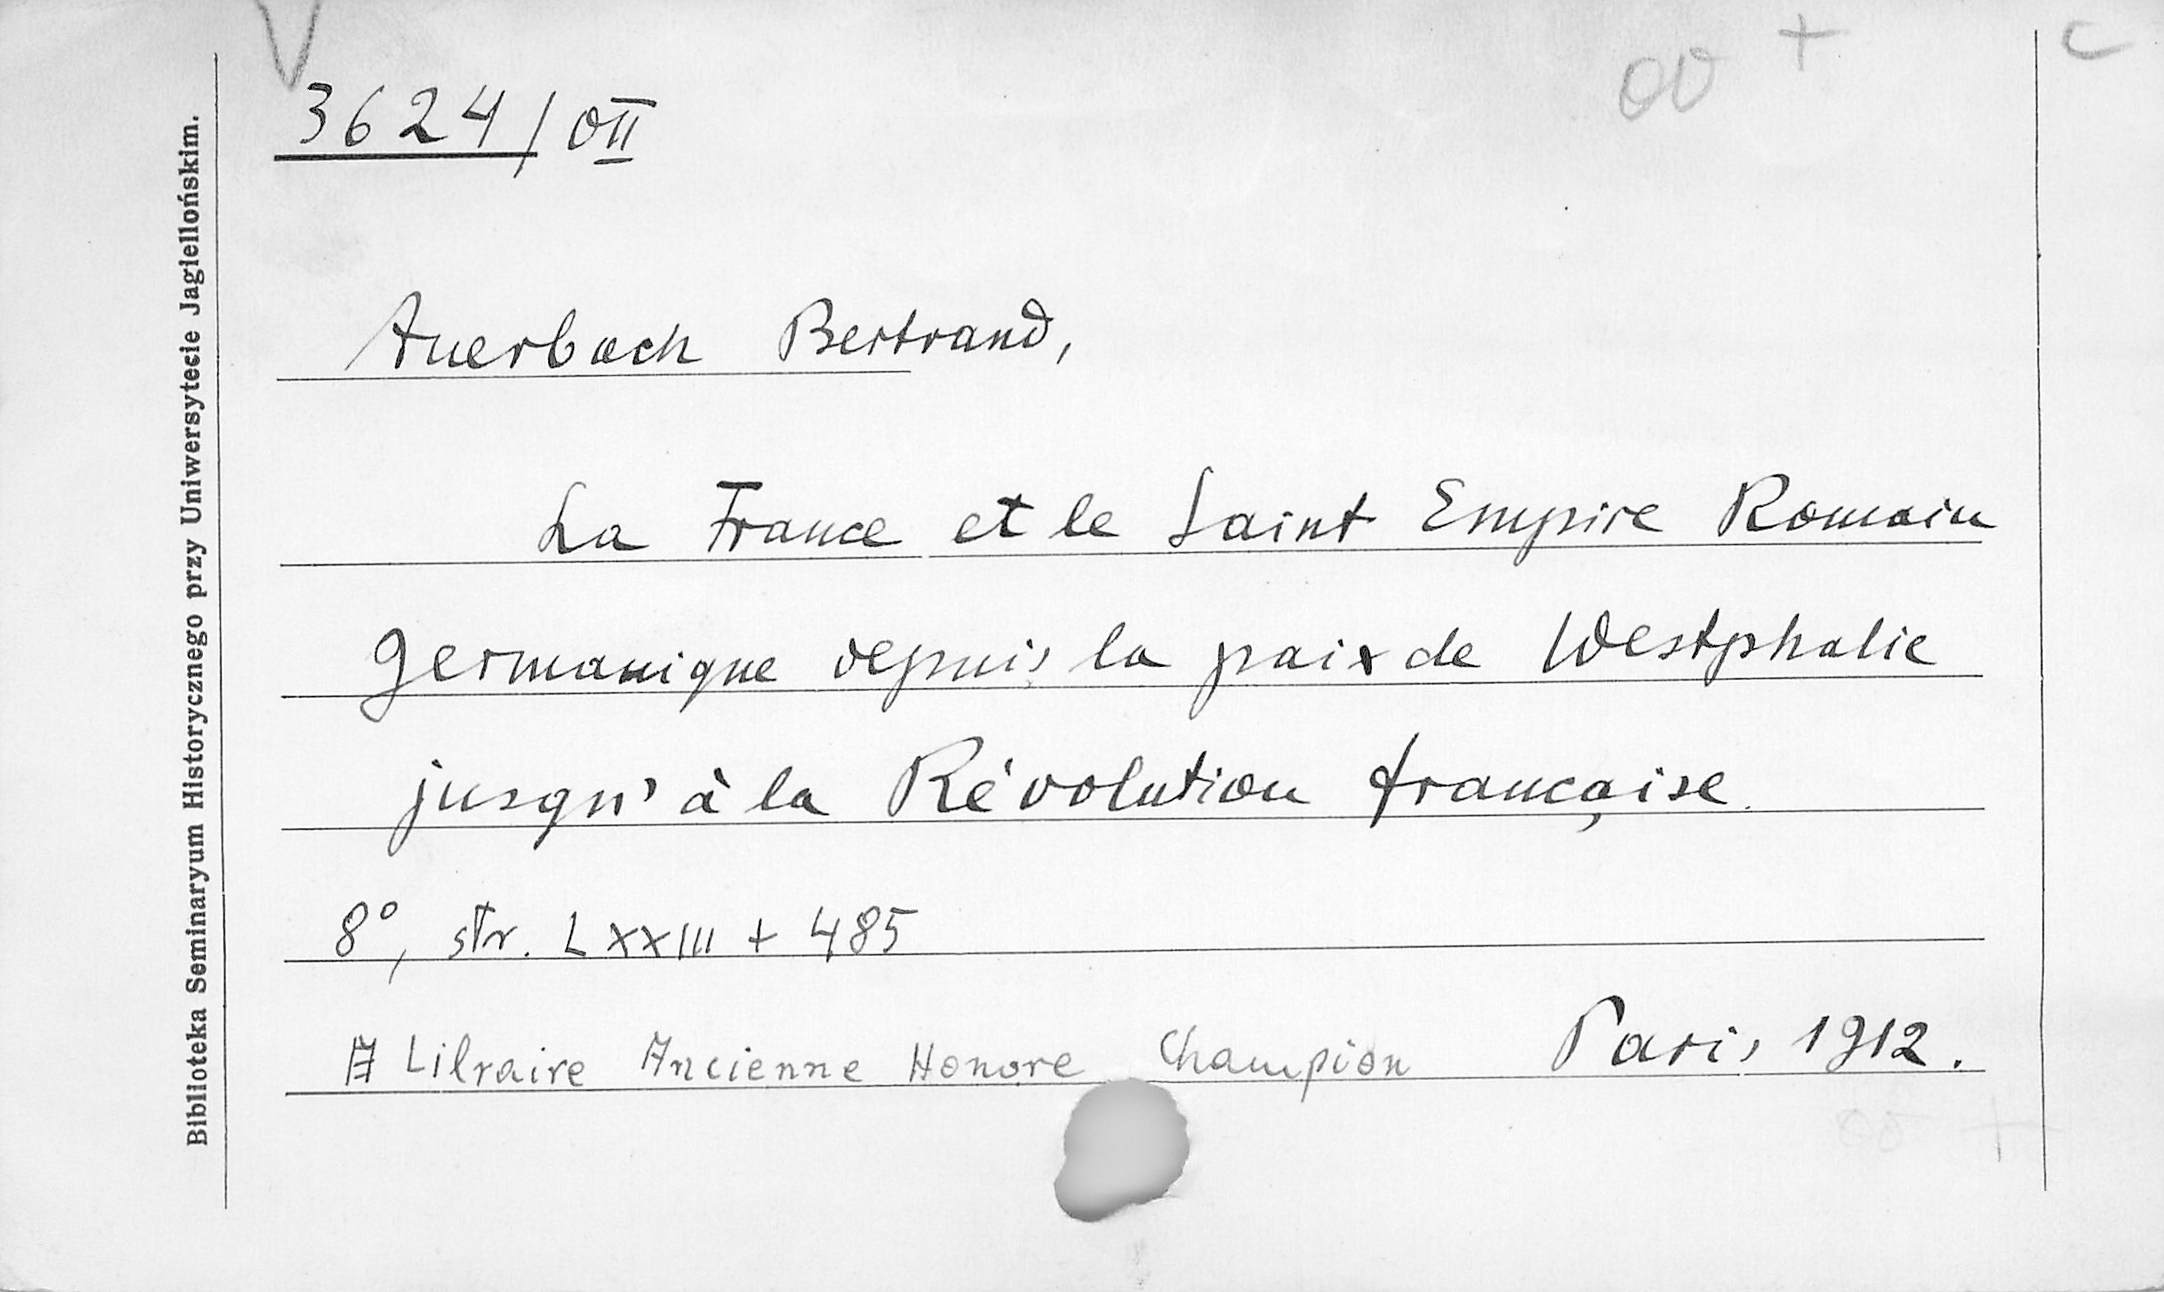 V
3624/OII
OO +
C
Biblioteka Seminaryum Historycznego przy Uniwersytecie Jagiellońskim.
Auerbach Bertrand,
La France et le Saint Empire Romain
germanique depuis la paix de Westphalie
jusqu'à la Révolution française.
8°, str. LXXIII + 485
Libraire Ancienne Honore Champion Paris 1912.